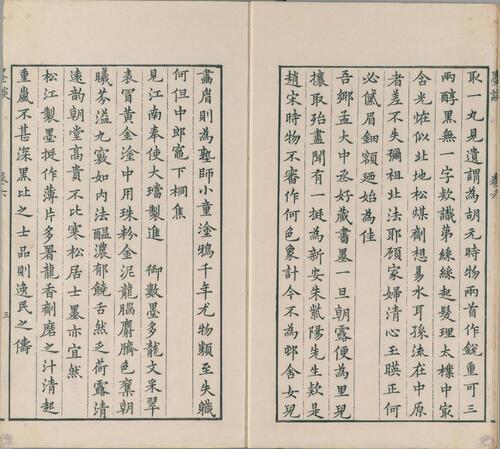 取一九見遺謂為胡元時物兩首作銳重可三
兩醇黑無一字欵識第絲絲起髮理太檏中㝡
含光在似北地松煤劑想易水耳孫流在中原
者差不失彌祖北法耶顧家婦清心玉暎正何
必儎眉鈿額廼始為佳
吾鄉孟大中丞好蔵書墨一旦朝露便為里兒
攘取殆盡聞有一挺為新安朱紫陽先生欵是
趙宋時物不審作何色象計今不為邨舍女兒
畫眉則為塾師小童塗鴉千年尤物類至失職
何但中郎竈下桐焦
見江南奉使大璫製進 御數墨多龍文采翠
表冒黃金塗中用珠粉金泥龍腦麝臍色奪朝
曦芬溢九竅如內法醞濃郁饒舌然乏荷露清
遠韵朝堂高貴不比寒松居士墨亦宜然
松江製墨挺作薄片多署龍香劑磨之汁清起
重嵐不甚深黑比之士品則逸民之儔
墨談
卷六
三